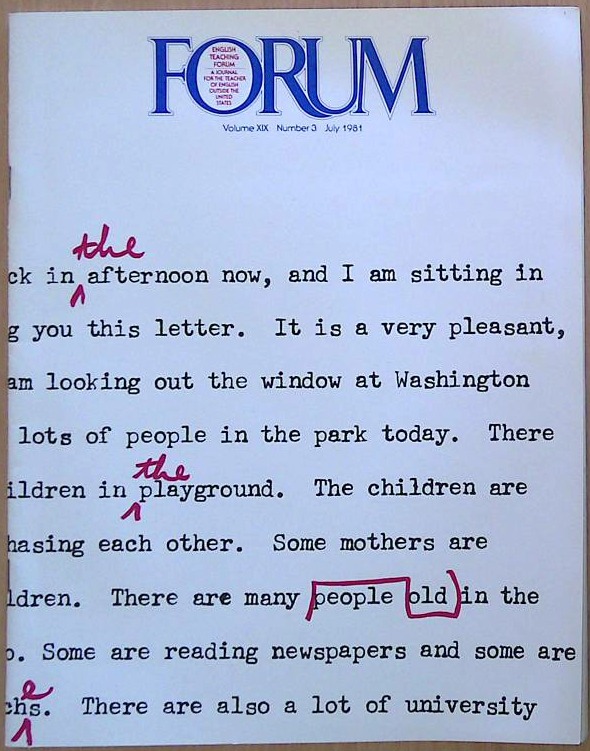 FORUM
ENGLISH
TEACHING
FORUM
A JOURNAL
FOR THE TEACHER
OF ENGLISH
OUTSIDE THE
UNITED
STATES
Volume XIX Number 3 July 1981
the
ck in afternoon now, and I am sitting in
g you this letter. It is a very pleasant,
am looking out the window at Washington
lots of people in the park today. There
the
ildren in playground. The children are
hasing each other. Some mothers are
ldren. There are many people old in the
o. Some are reading newspapers and some are
e
chs. There are also a lot of university